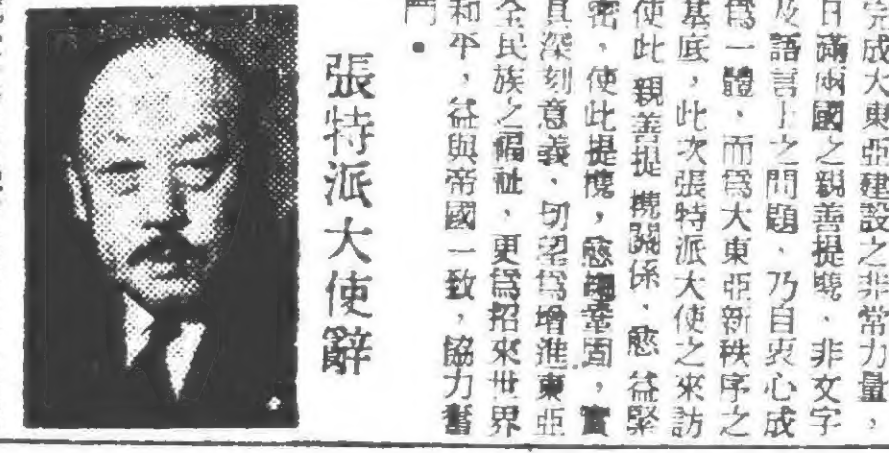 完成大東亞建設之非常力量，
日滿兩國之親善提攜、非文字
及語言上之問題、乃自衷心成
爲一體、而爲大東亞新秩序之
基底，此次張特派大使之來訪
使此親善提攜關係、愈益緊
密、使此提攜，愈鞏固，實
具深刻意義、切望爲增進東亞
全民族之福祉、更爲招來世界
和平，益與帝國一致，協力奮
鬥．
張特派大使辭